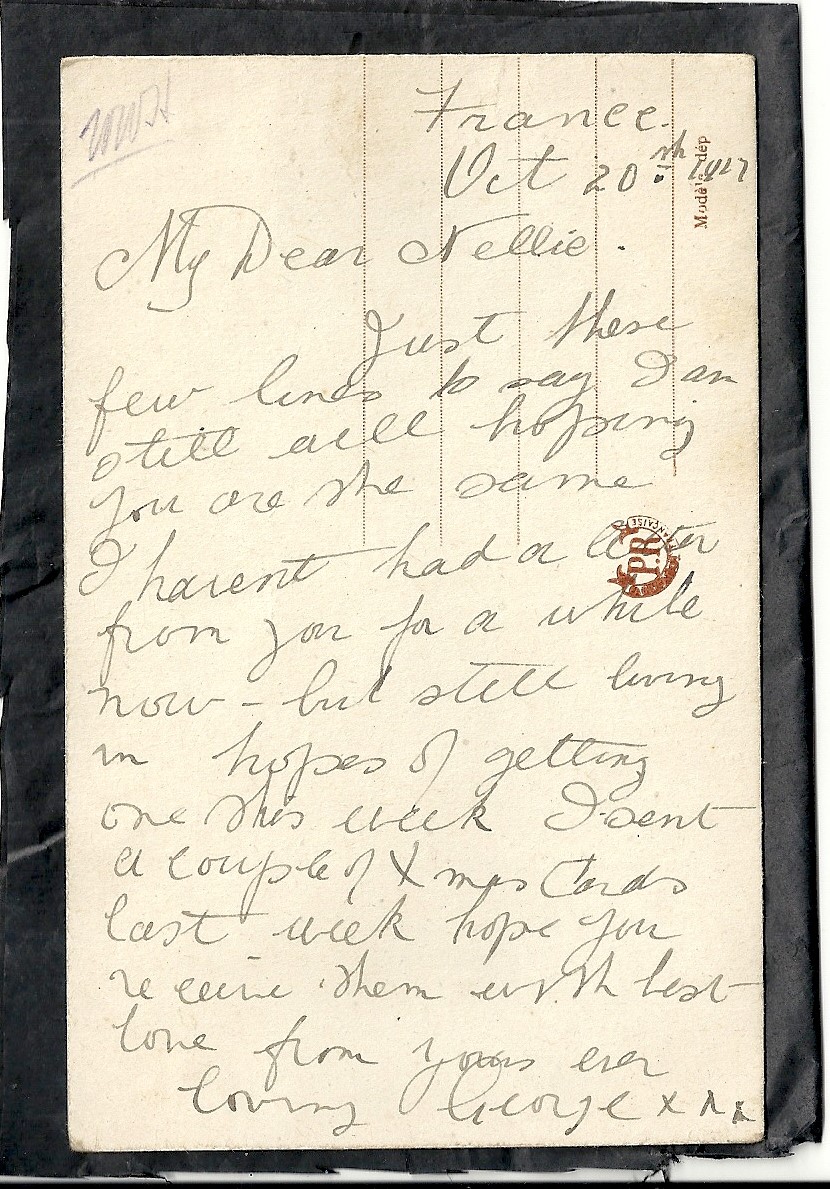 WW1
France.
Oct 20th 1917
Modèle dép
My Dear Nellie.
Just these
few lines to say I am
still well hoping
you are the same
I havent had a letter
from you for a while
now - but still living
in hopes of getting
one this week I sent
a couple of Xmas Cards
last week hope you
receive them with best
love from yours ever
loving George x x x
P.R
FRANÇAISE